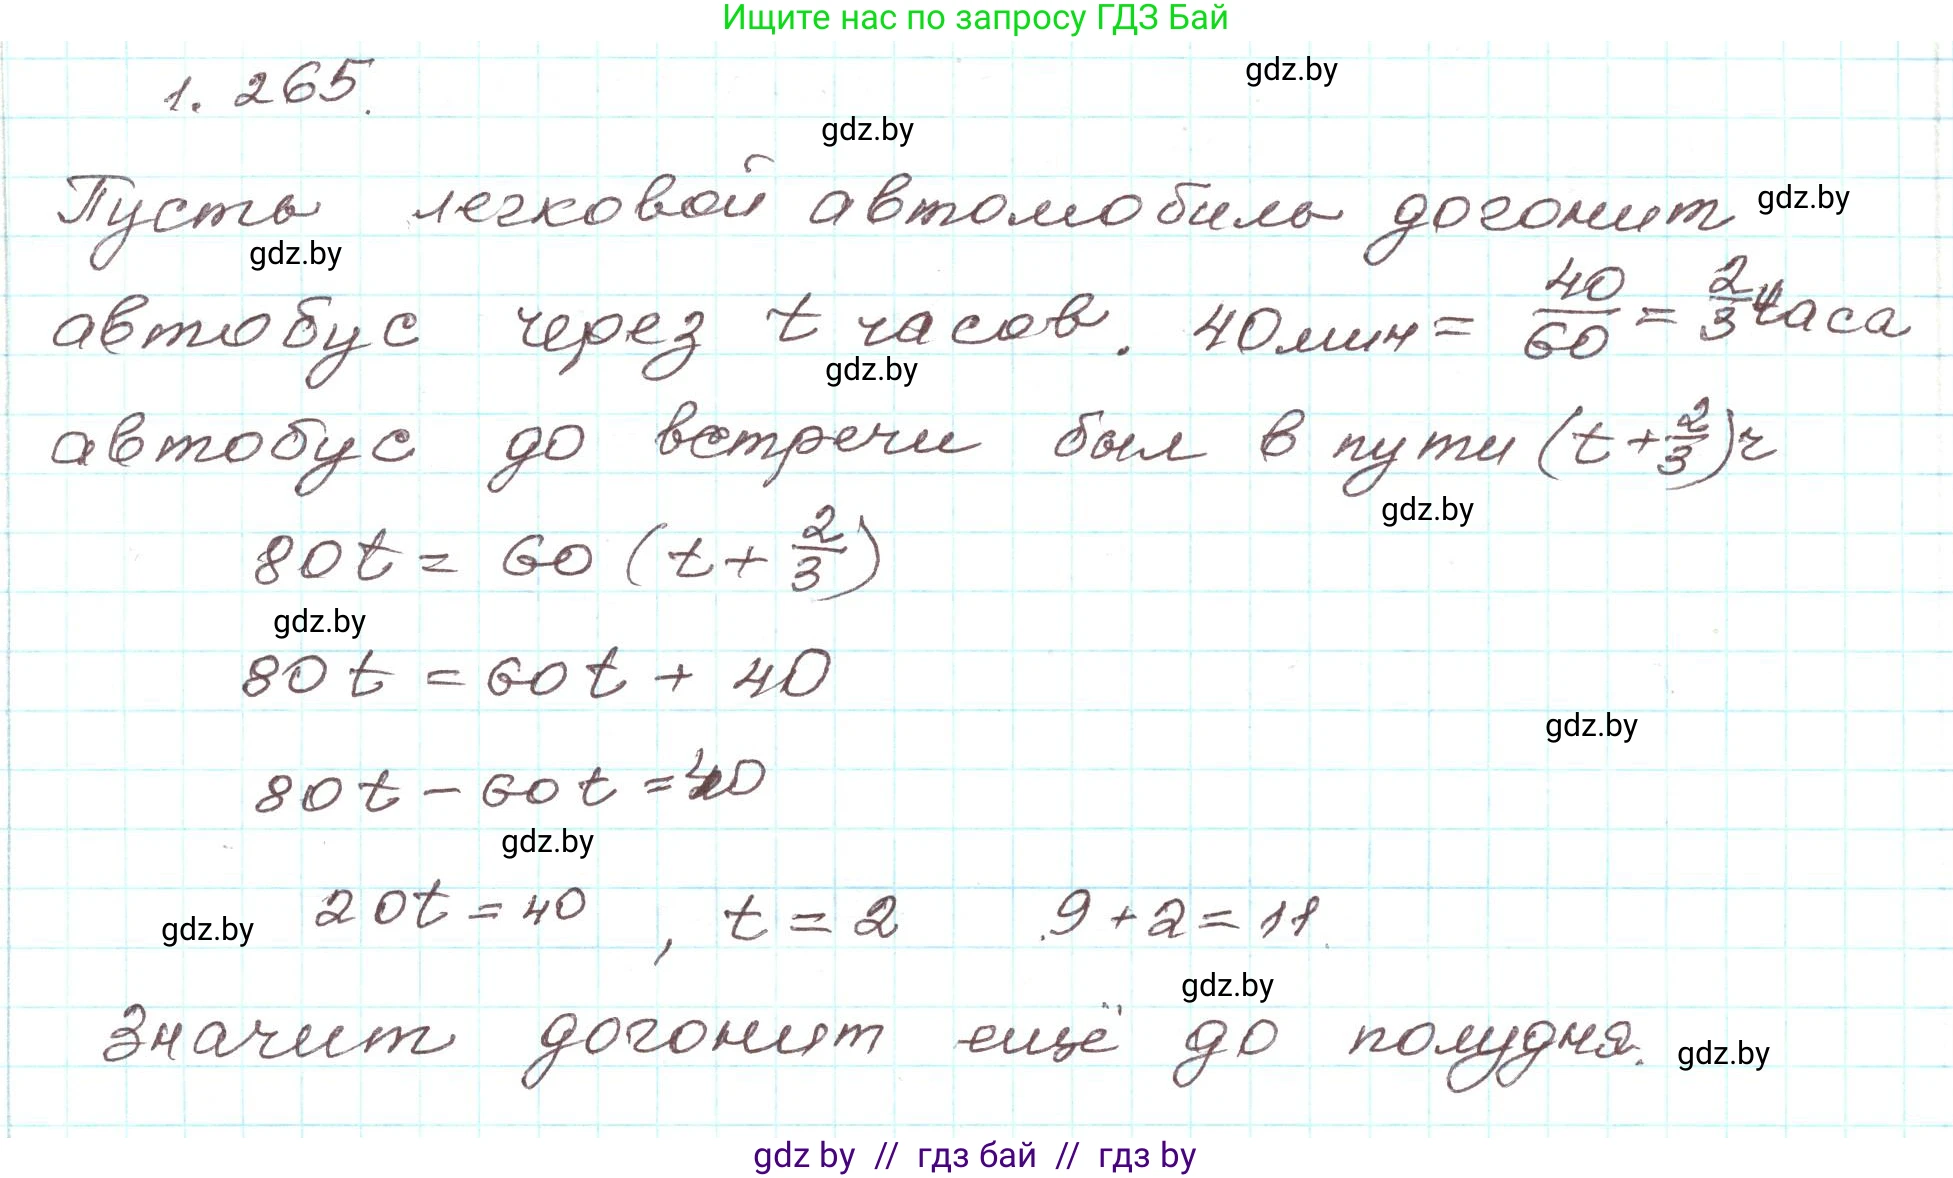 Ищите нас по запросу ГДЗ Бай
1. 265.
gdz.by
gdz.by
Пусть легковой автомобиль догонит
gdz.by
gdz.by
автобус через t часов. 40мин = 40/60 = 2/3 часа
gdz.by
автобус до встречи был в пути (t + 2/3) ч
gdz.by
80t = 60 (t + 2/3)
gdz.by
80t = 60t + 40
gdz.by
80t - 60t = 40
gdz.by
20t = 40 , t = 2 9 + 2 = 11.
gdz.by
gdz.by
Значит догонит ещё до полудня.
gdz.by
gdz by // гдз бай // гдз by